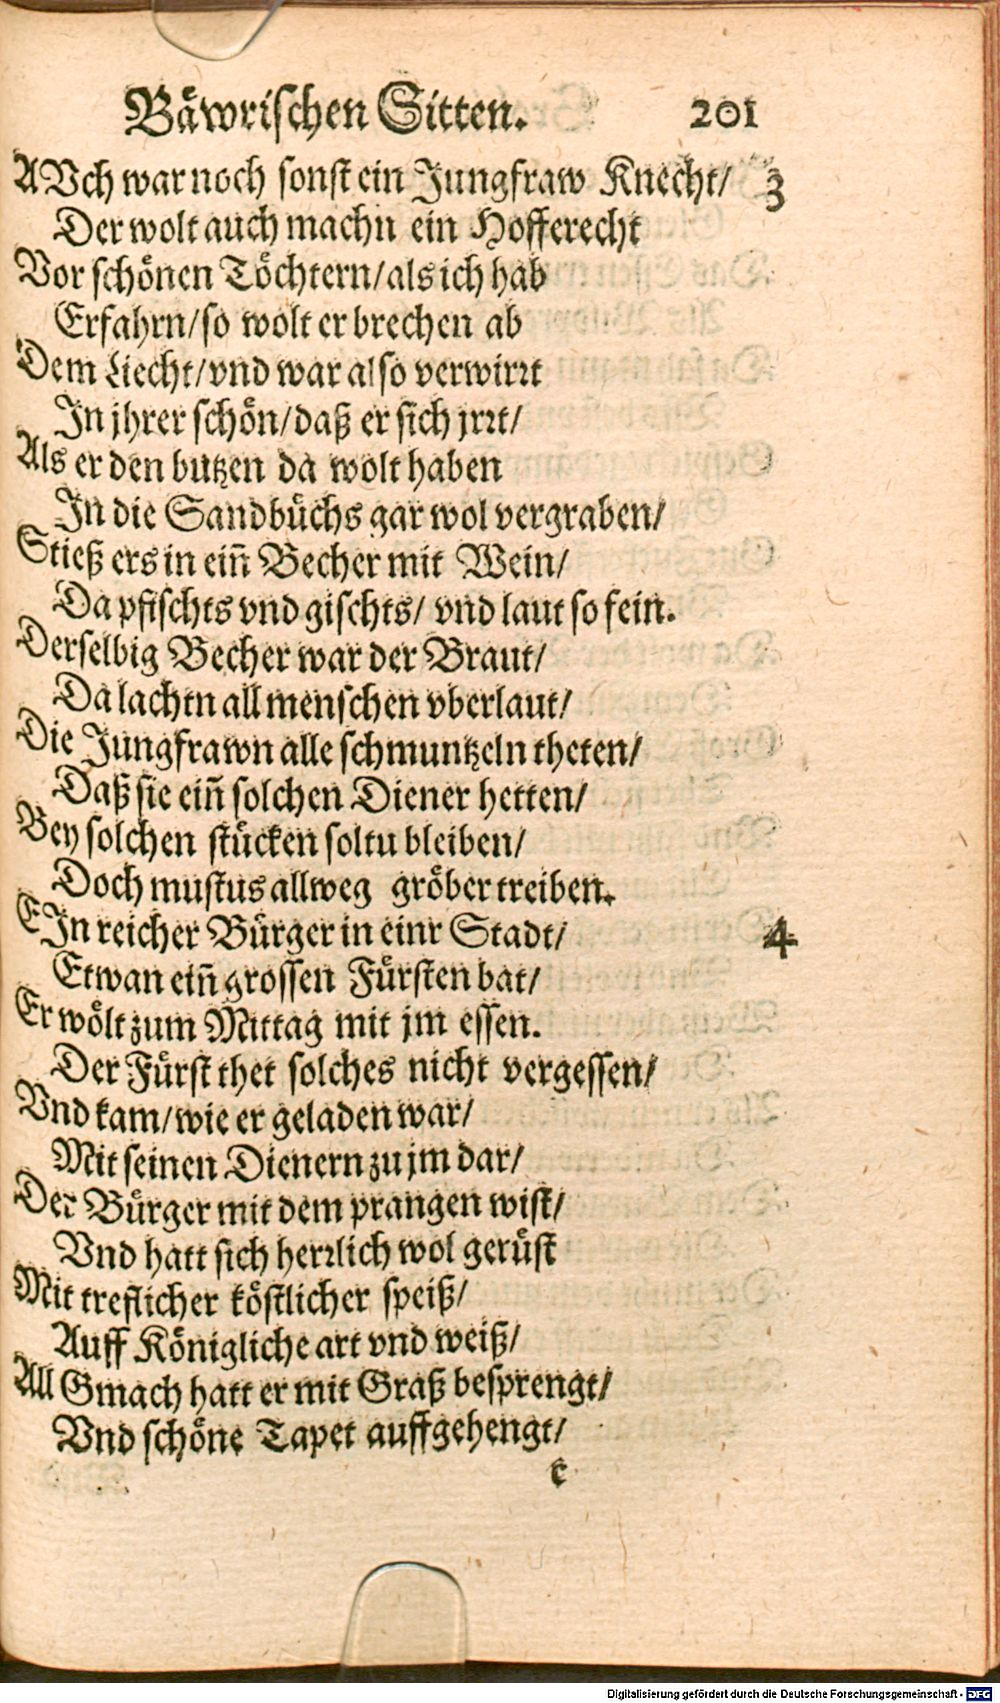 Bäwrischen Sitten. 201
AVch war noch sonst ein Jungfraw Knecht/ 3
Der wolt auch machn ein Hofferecht
Vor schönen Töchtern/als ich hab
Erfahrn/so wolt er brechen ab
Dem Liecht/vnd war also verwirrt
In jhrer schön/daß er sich jrrt/
Als er den butzen da wolt haben
In die Sandbüchs gar wol vergraben/
Stieß ers in ein̄ Becher mit Wein/
Da pfischts vnd gischts/ vnd laut so fein.
Derselbig Becher war der Braut/
Da lachtn all menschen vberlaut/
Die Jungfrawn alle schmuntzeln theten/
Daß sie ein̄ solchen Diener hetten/
Bey solchen stücken soltu bleiben/
Doch mustus allweg gröber treiben.
EJn reicher Bürger in einr Stadt/ 4
Etwan ein̄ grossen Fürsten bat/
Er wölt zum Mittag mit jm essen.
Der Fürst thet solches nicht vergessen/
Vnd kam/wie er geladen war/
Mit seinen Dienern zu jm dar/
Der Bürger mit dem prangen wist/
Vnd hatt sich herrlich wol gerüst
Mit treflicher köstlicher speiß/
Auff Königliche art vnd weiß/
All Gmach hatt er mit Graß besprengt/
Vnd schöne Tapet auffgehengt/
c
Digitalisierung gefördert durch die Deutsche Forschungsgemeinschaft - DFG